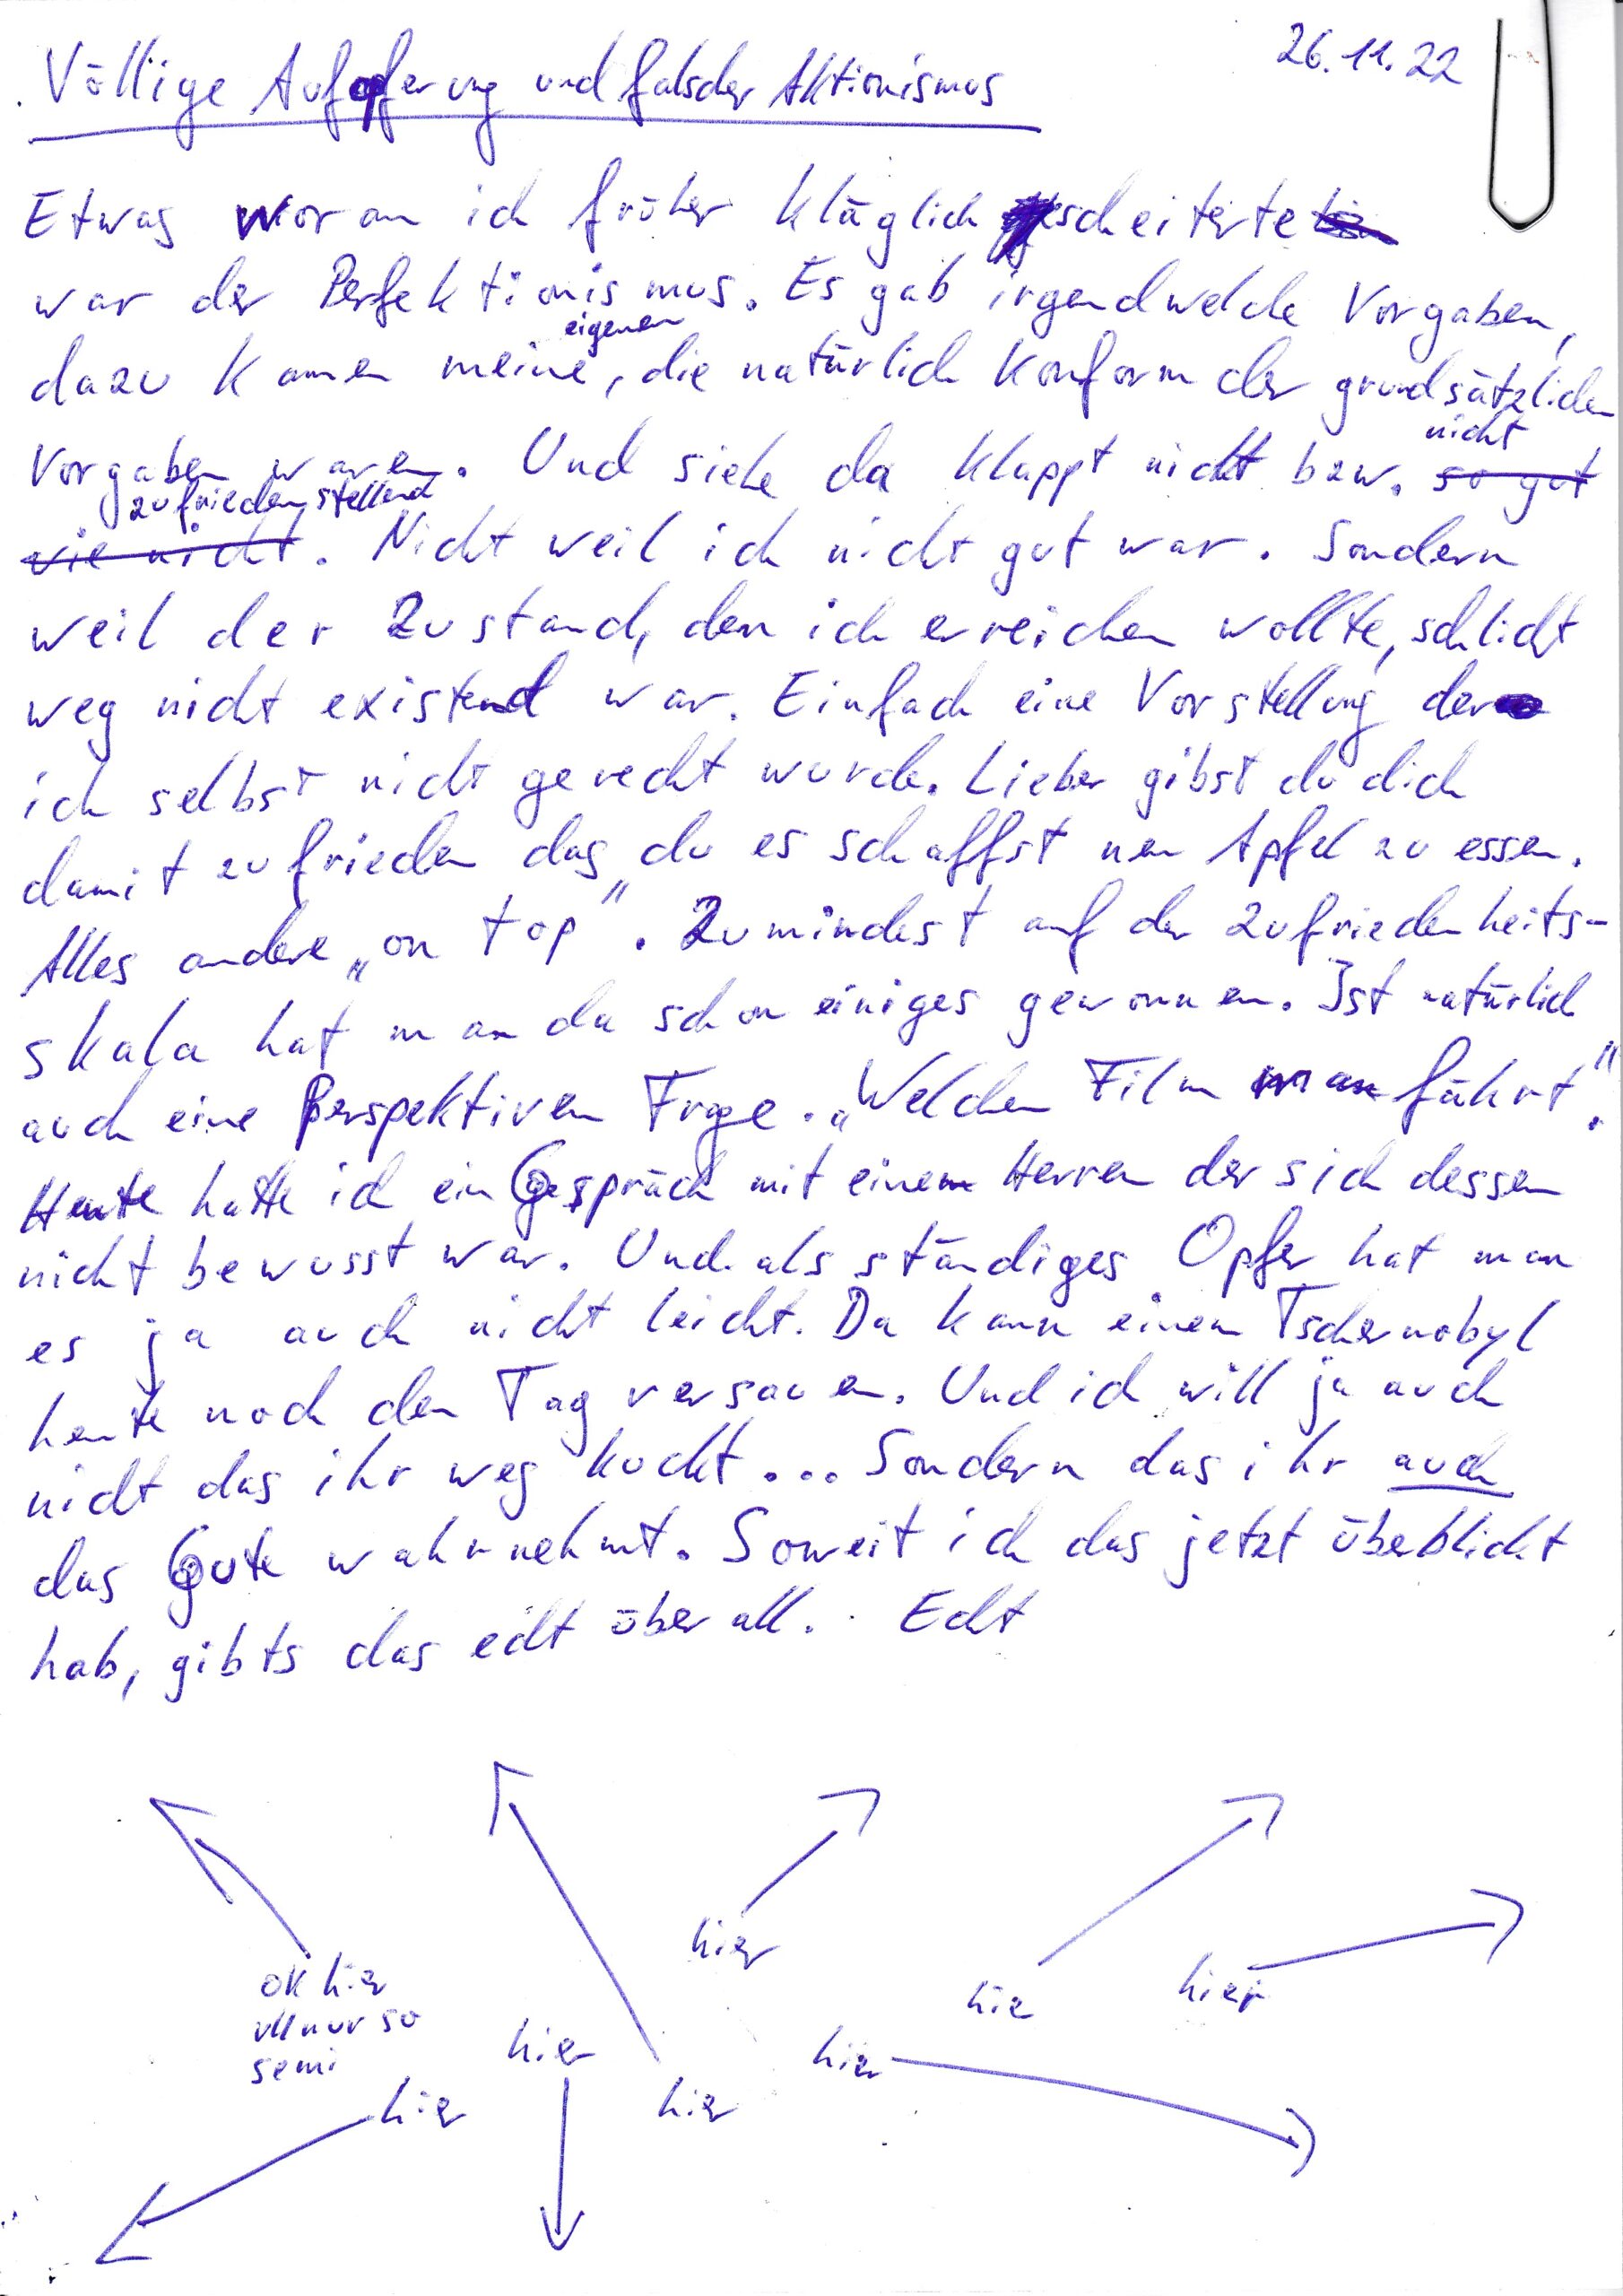 26.11.22
Völlige Aufopferung und falscher Aktionismus
Etwas woran ich früher kläglich scheiterte
war der Perfektionismus. Es gab irgendwelche Vorgaben,
dazu kamen meine eigenen, die natürlich konform der grundsätzlichen
Vorgaben waren. Und siehe da klappt nicht bzw. so gut nicht
wie nicht zufriedenstellend. Nicht weil ich nicht gut war. Sondern
weil der Zustand, den ich erreichen wollte, schlicht
weg nicht existend war. Einfach eine Vorstellung der
ich selbst nicht gerecht wurde. Lieber gibst du dich
damit zufrieden das du es schaffst nen Apfel zu essen.
Alles andere „on top". Zumindest auf der Zufriedenheits-
skala hat man da schon einiges gewonnen. Ist natürlich
auch eine Perspektiven Frage. „Welchen Film man fährt".
Heute hatte ich ein Gespräch mit einem Herren der sich dessen
nicht bewusst war. Und als ständiges Opfer hat man
es ja auch nicht leicht. Da kann einem Tschernobyl
heute noch den Tag versauen. Und ich will ja auch
nicht das ihr weg kuckt... Sondern das ihr auch
das Gute wahrnehmt. Soweit ich das jetzt überblickt
hab, gibts das echt überall. Echt
hier
ok hier
vll nur so
semi
hie
hier
hier
hier
hier
hier